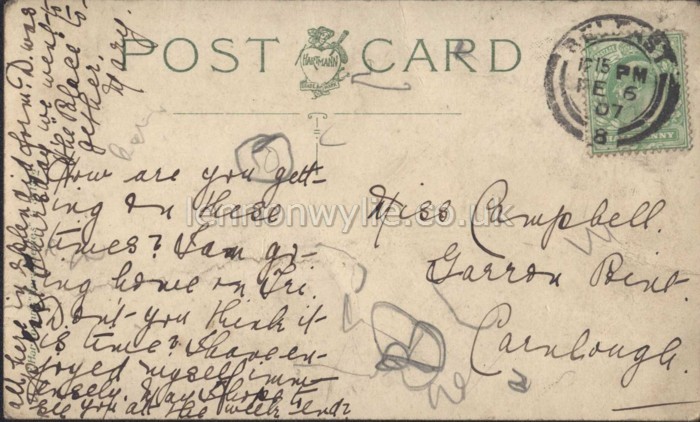 POST CARD
HARTMANN
BELFAST
1215 PM
FE 6
07
8
How are you gett-
ing on these
times? I am go-
ing home on Fri.
Don't you think it
is time? I have en-
joyed myself imm-
ensely. May I hope to
see you at the week end?
all here in splendid form. D. was
we went to
the Palace to-
gether.
Mary.
Miss Campbell.
Garron Point.
Carnlough.
lennonwylie.co.uk